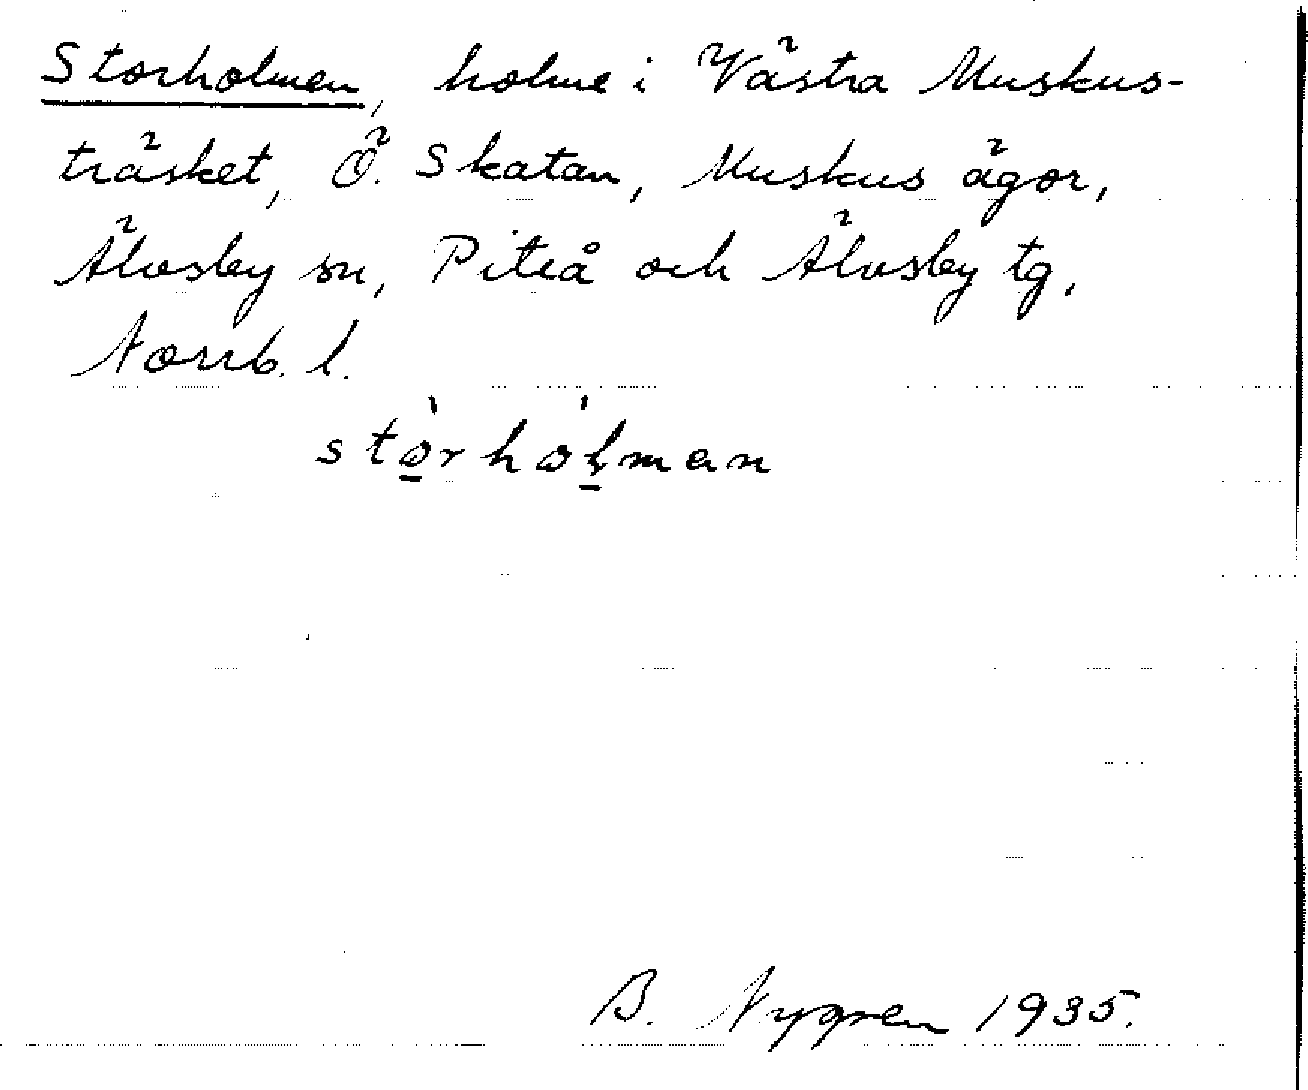 Storholmen, holme i Västra Muskus-
träsket, Ö. Skatan, Muskus ägor,
Älvsby sn, Piteå och Älvsby tg,
Norrb. l.
stò̲rhó̲l̲man
B. Nygren 1935.